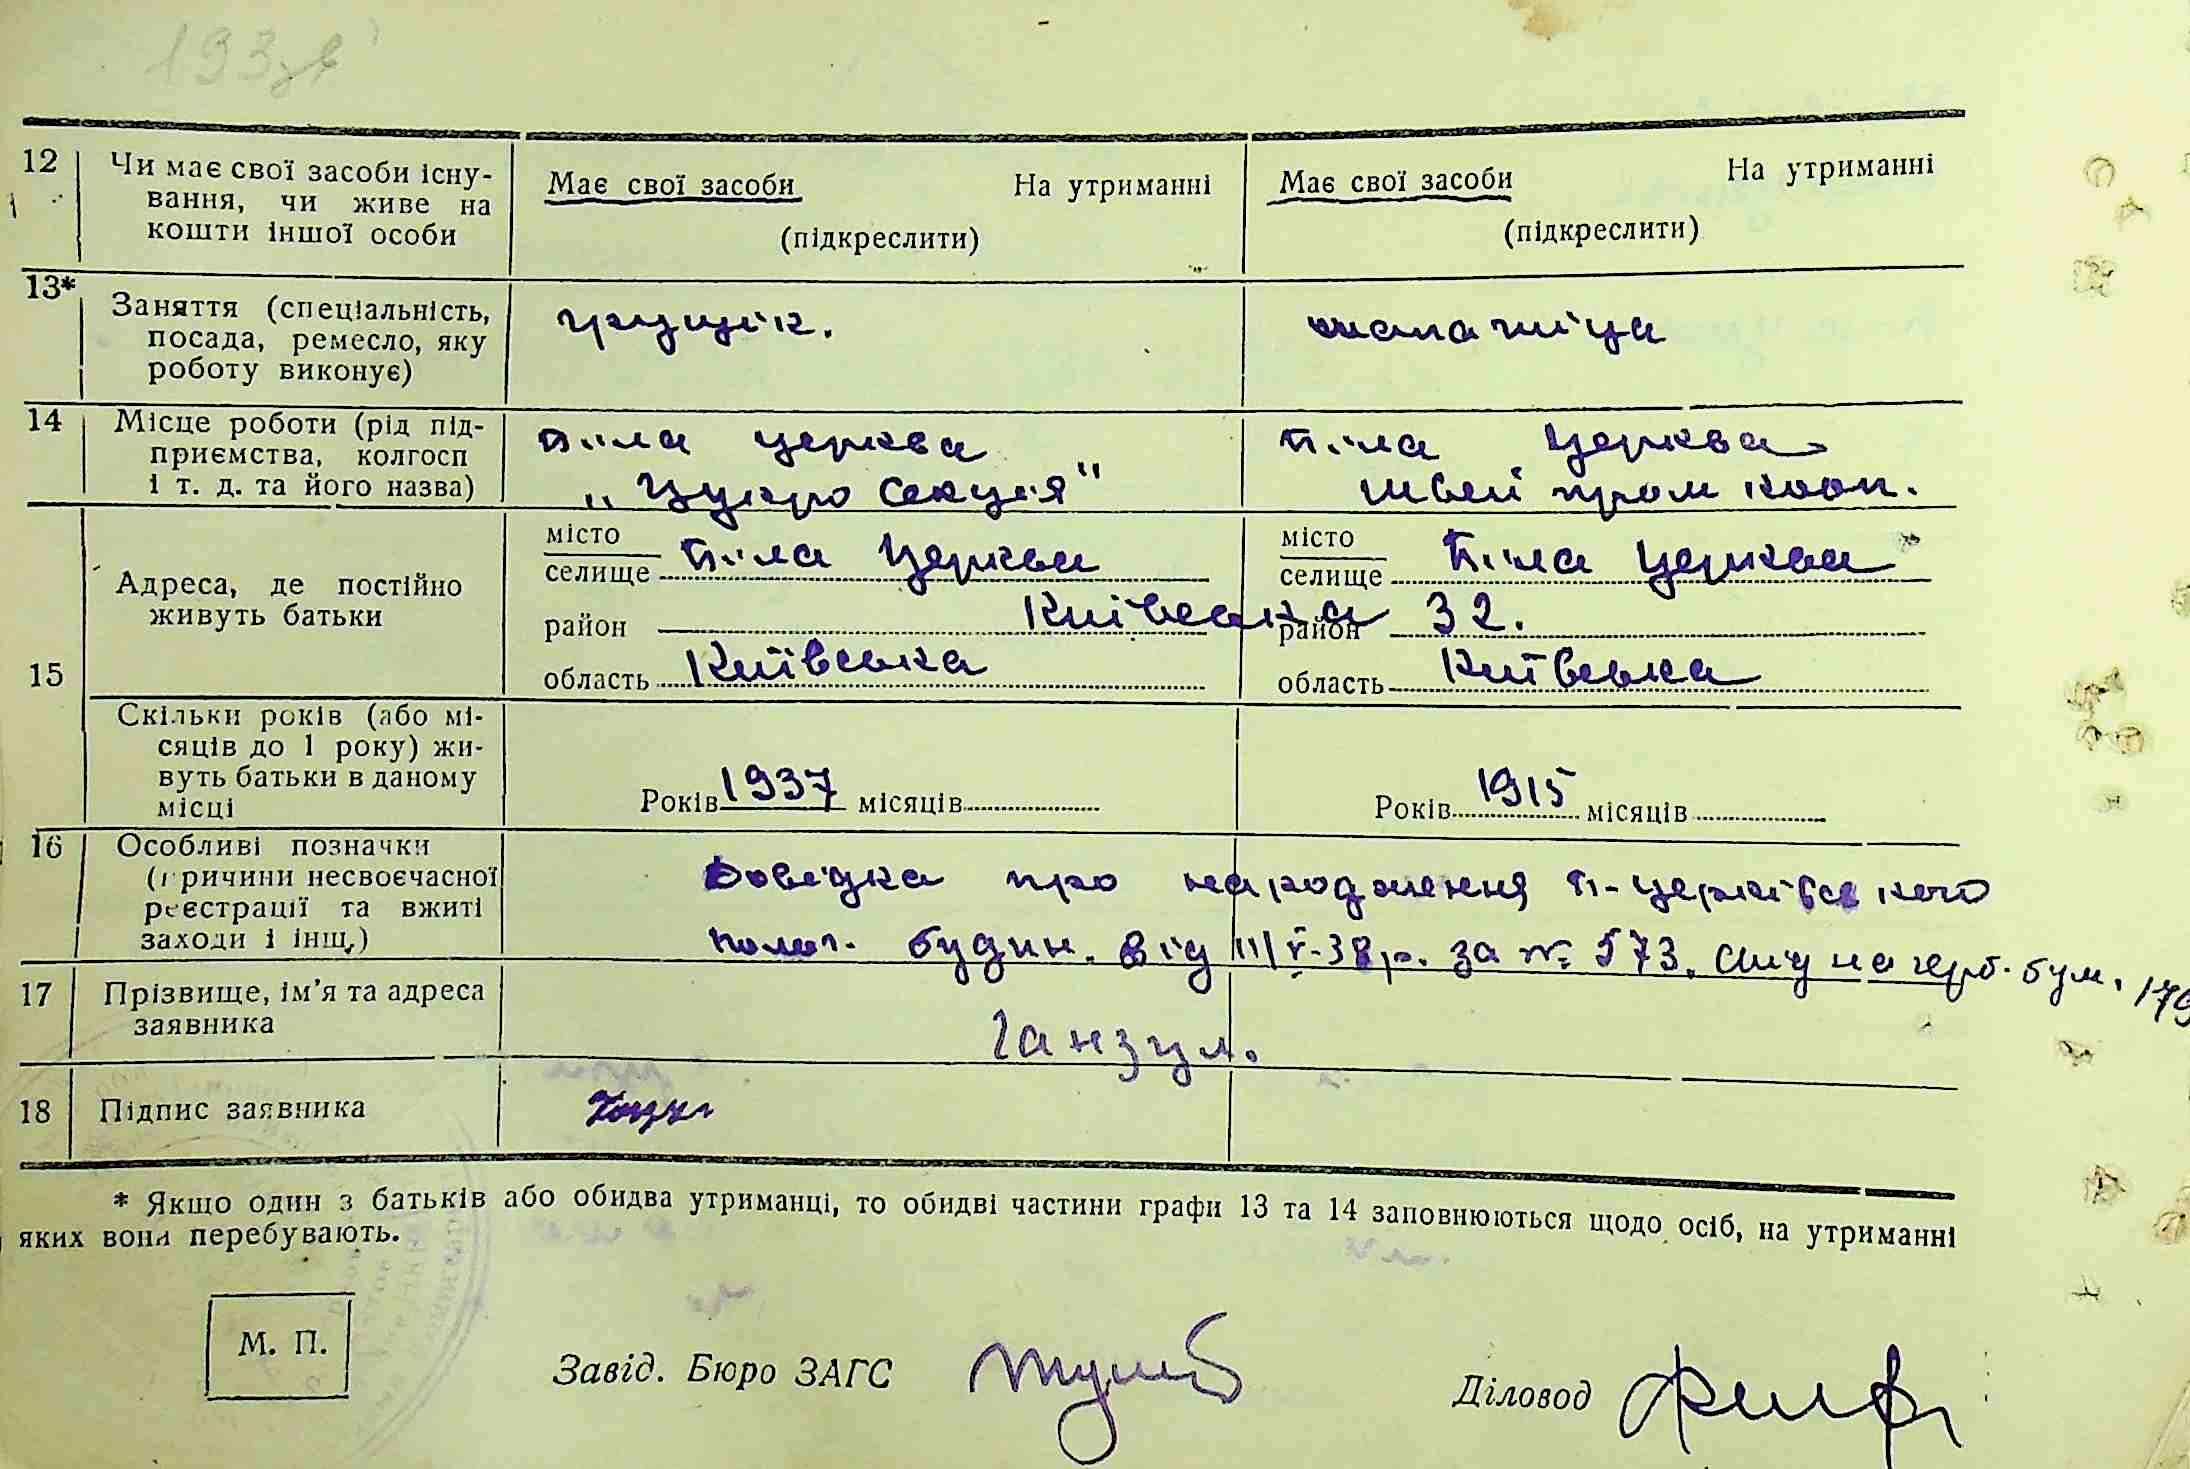 193
12 Чи має свої засоби існу-
вання, чи живе на
кошти іншої особи
Має свої засоби На утриманні
(підкреслити)
Має свої засоби На утриманні
(підкреслити)
13* Заняття (спеціальність,
посада, ремесло, яку
роботу виконує)
грущік.
14 Місце роботи (рід під-
приємства, колгосп
і т. д. та його назва)
Біла церква
„Цукро секція"
Біла Церква
Швей пром кооп.
15 Адреса, де постійно
живуть батьки
місто
селище Біла Церква
район Київська
область Київська
місто
селище Біла Церква
район 32.
область Київська
Скільки років (або мі-
сяців до 1 року) жи-
вуть батьки в даному
місці
Років 1937 місяців
Років 1915 місяців
16 Особливі позначки
(причини несвоєчасної
реєстрації та вжиті
заходи і інш,)
Довідка про народження Б-церківського
полог. будин. від 11/V-38р. за № 573. на герб. бум.
17 Прізвище, ім'я та адреса
заявника
Ганзул.
18 Підпис заявника
* Якщо один з батьків або обидва утриманці, то обидві частини графи 13 та 14 заповнюються щодо осіб, на утриманні
яких вони перебувають.
М. П.
Завід. Бюро ЗАГС
Діловод